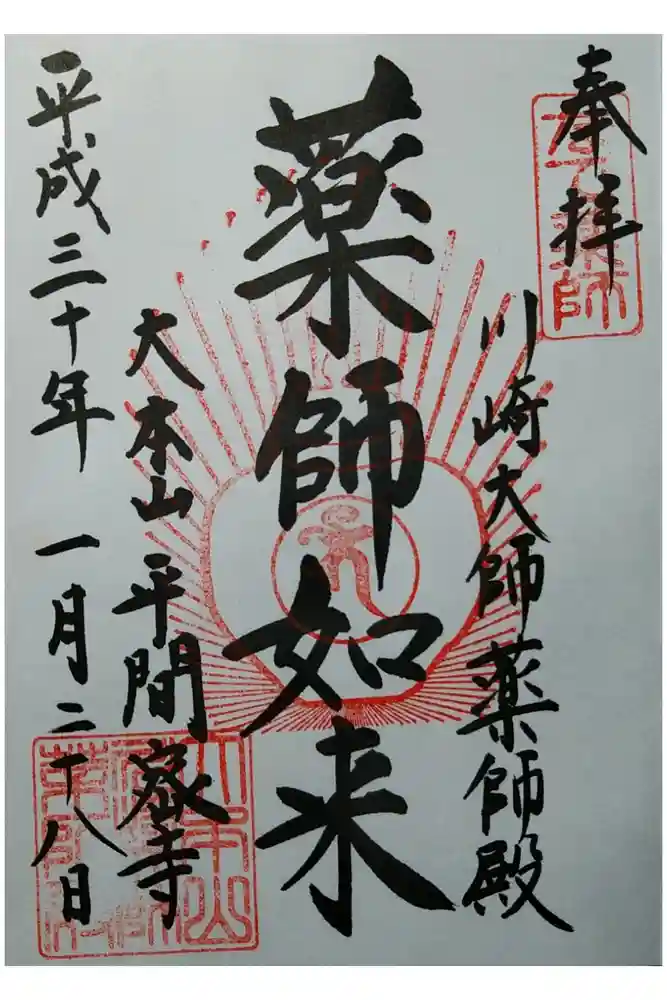 奉拝
川崎大師薬師殿
薬師如来
大本山平間寺
平成三十年一月二十八日